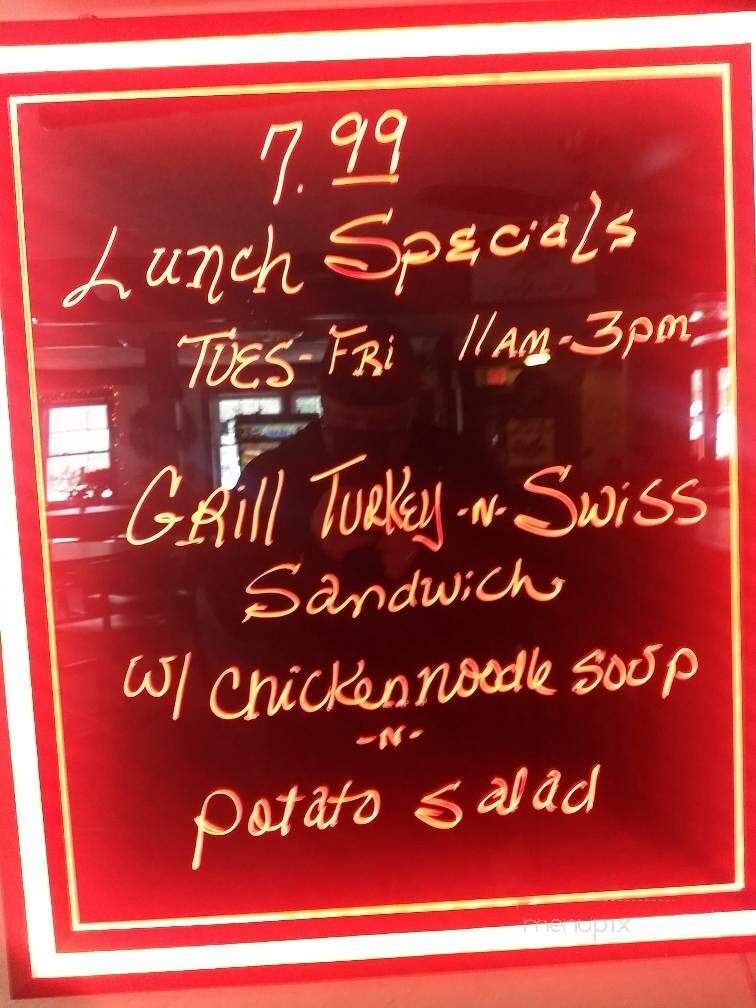 7.99
Lunch Specials
TUES-FRi 11AM-3pm
GRill TURKEY -N- SWiSS
Sandwich
W/ Chicken noodle soup
-N-
potato salad
menupix